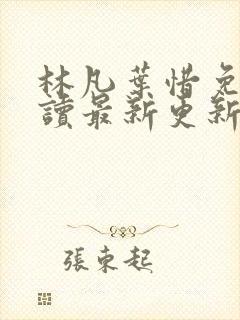 林凡葉惜免
讀最新更新
張東起